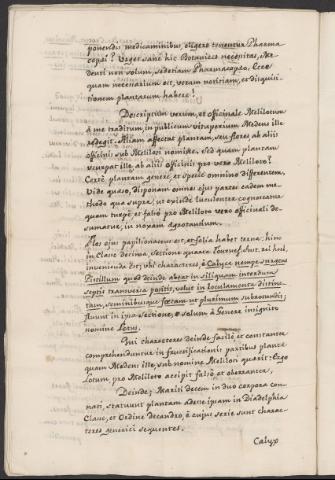 ponendis medicaminibus, eligere tenentur Pharma-
copaei? Urget sanè hic Botanices necessitas, stu-
denti non solum, sed etiam Pharmacopaeo. Ecce
quam necessarium est, veram notitiam, et disquisi-
tionem plantarum habere!
Descriptum verum, et officinale Melilotum
à me traditum, in publicum vituperium Modens ille
redegit. Aliam affectat plantam, seu flores ab aliis
officinis sub Meliloti nomine. Sed quam plantam
usurpat ille ab aliis officinis pro vero Meliloto?
Certè plantam genere, et specie omnino differentem.
Vide quaeso, disponam omnes ejus partes eadem me-
thodo qua supra, ut exinde lucidenter cognoscatur
quam turpè et falsò pro Meliloto vero officinali de-
sumatur, in noxam aegrotantium.
Flos ejus papilionaceus est, et folia habet terna: hinc
in Classe decima, Sectione quarta Tournef. Inst. rei herb.
invenienda est; ubi characteres, è Calyce nempe surgens
Pistillum quod deinde abeat in siliquam interdum
septis transversis positis, velut in loculamenta distinc-
tam, seminibusque foetam ut plurimum subrotundis;
fluunt in ipsa sectione, è solum à Genere insignito
nomine Lotus.
Qui characteres deinde facilè et constanter
comprehenduntur in fructificationis partibus plantae
quam Modens ille, sub nomine Meliloti quaerit: Ergo
Lotum, pro Meliloto accipit falsò et oberranter.
Deinde; Mariti decem in duo corpora con-
nati, statuunt plantam adesse ipsam in Diadelphia
Classe, et Ordine decandro, è cujus serie sunt charac-
teres generici sequentes.
Calyx